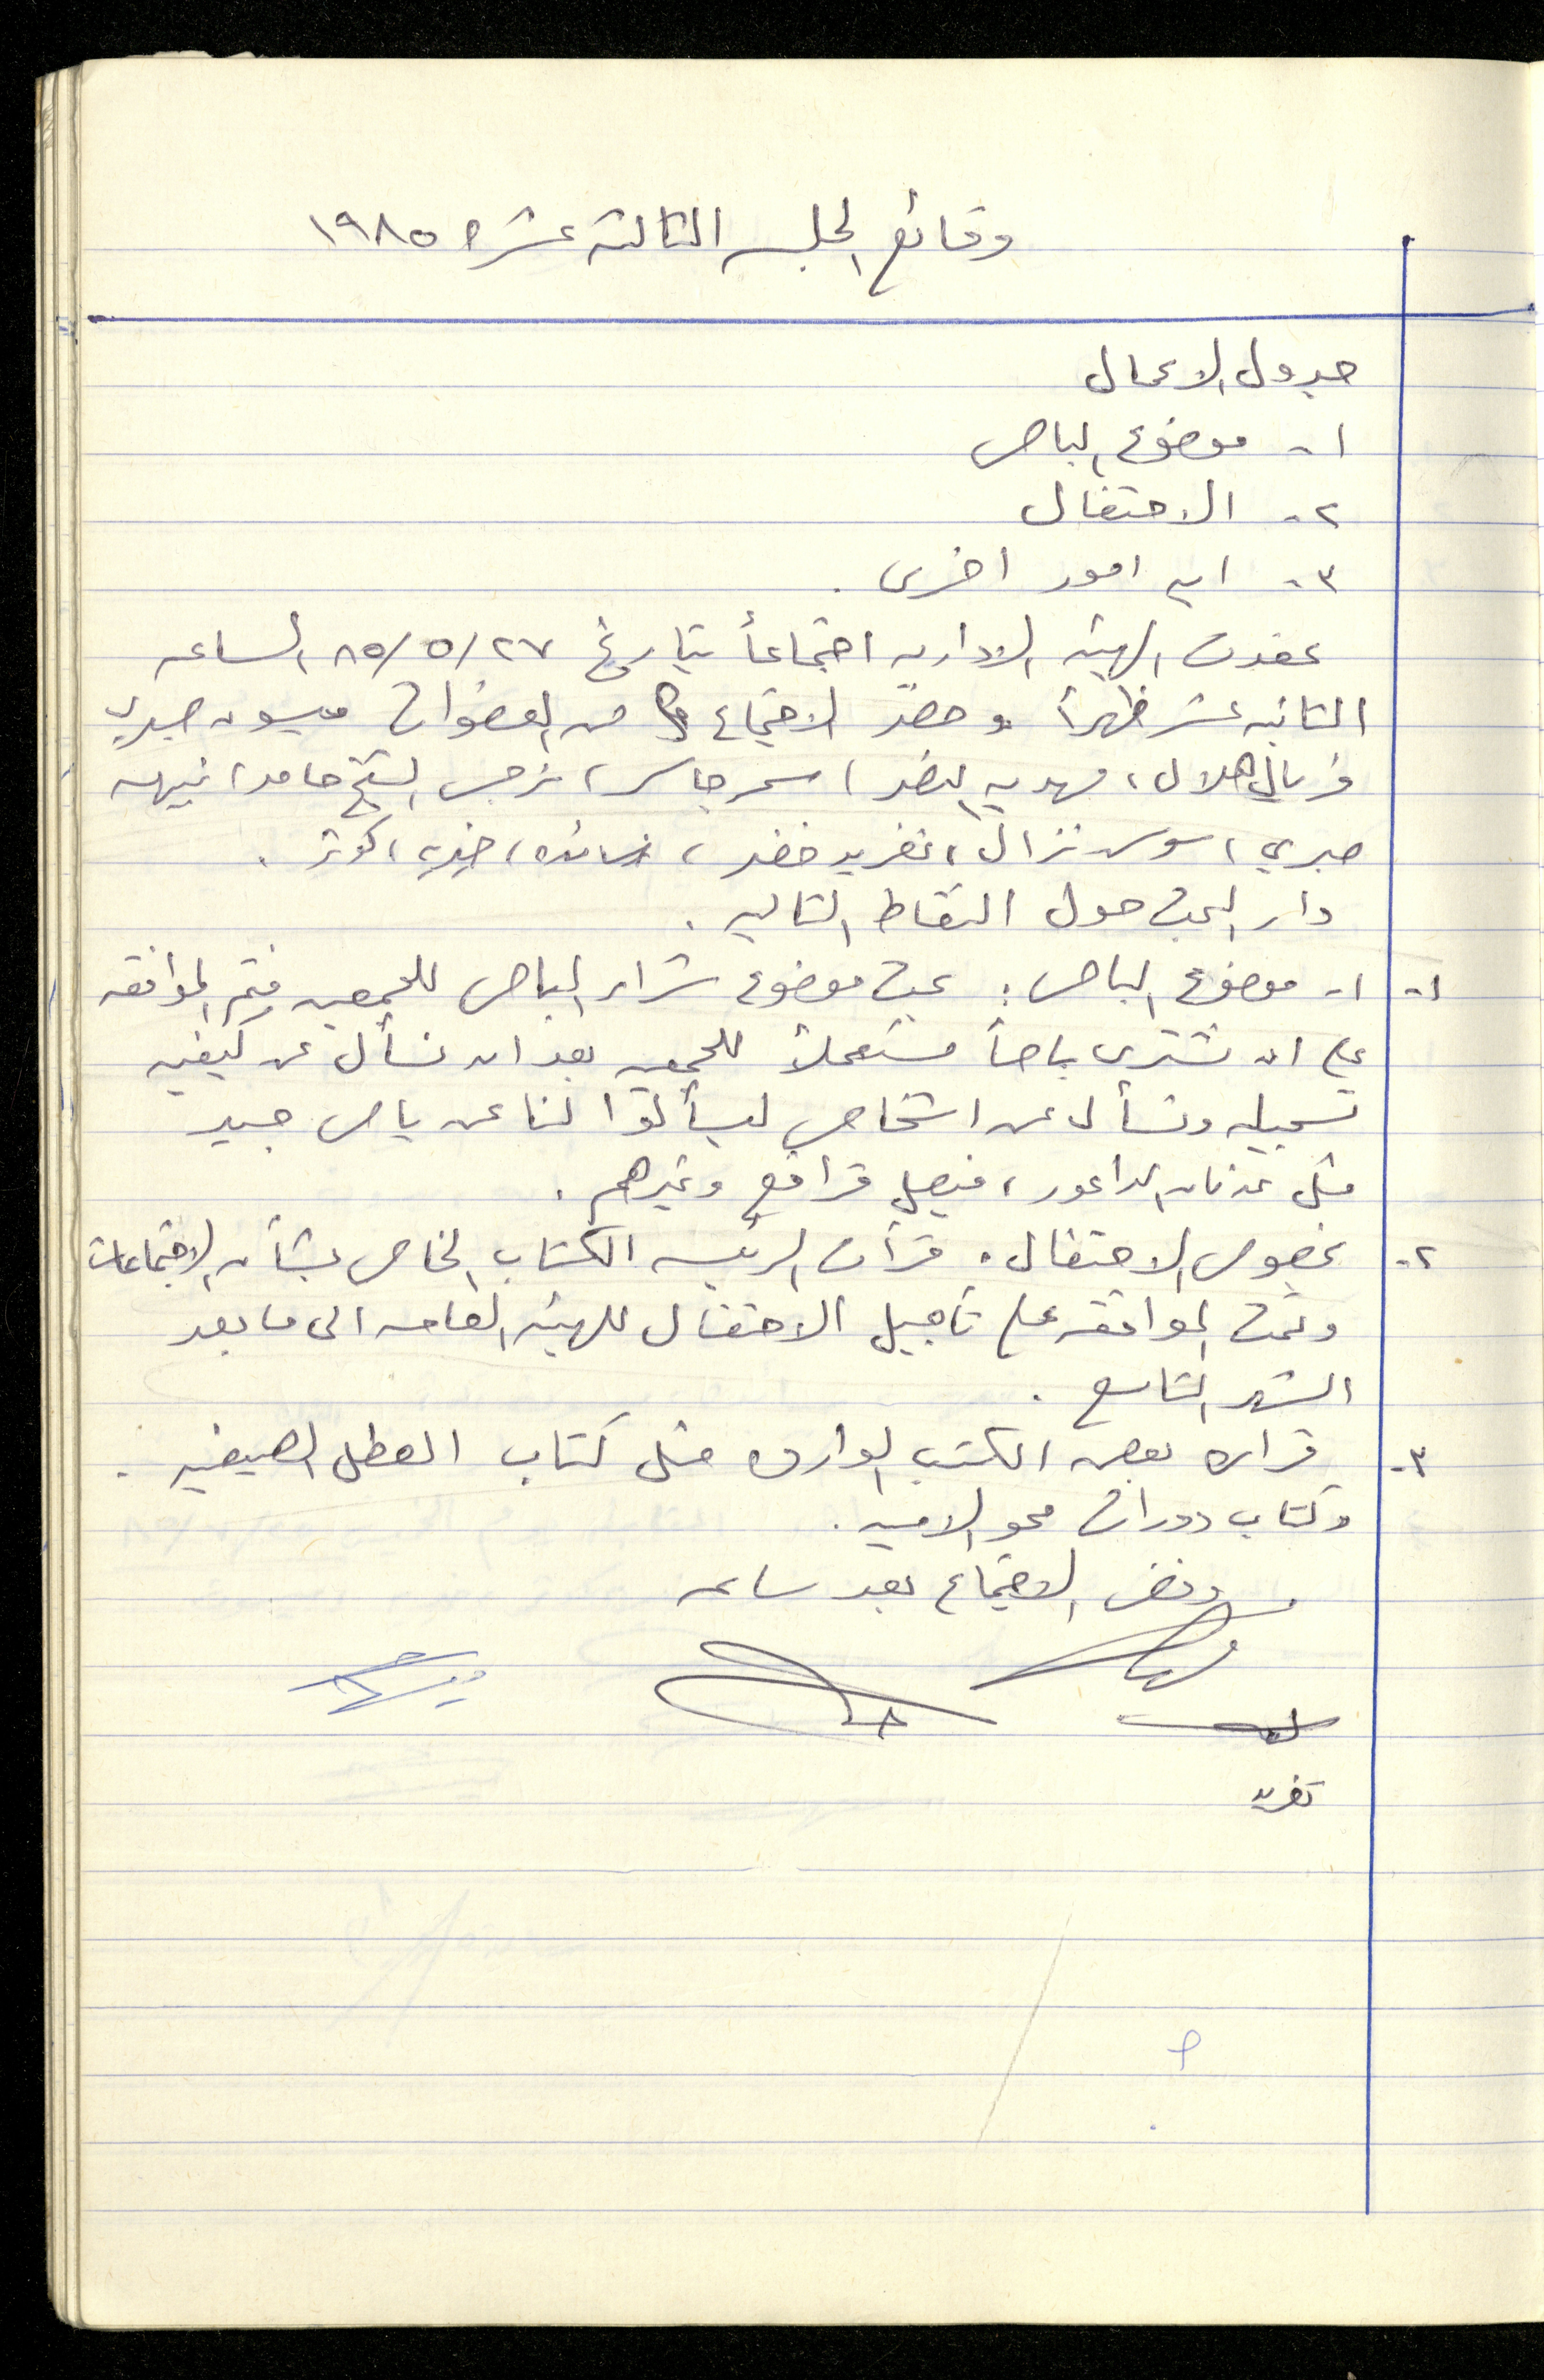 وقائع الجلسه الثالثه عشره ١٩٨٥
جدول الاعمال
١- موضوع الباص
٢- الاحتفال
٣- ايه امور اخرى .
عقدت الهيئه الاداريه اجتماعاً بتاريخ ٢٧/٥/٨٥ الساعه
الثانيه عشر ظهراً وحضر الاجتماع من العضوات ميسون صبري
فريال هلال ، مهديه النضر ، سحر جاسر ، نرجس الشيخ حامد ، نبيهه
صبري ، سوسن نزال ، تغريد خضر ، ، خيريه ، كوثر .
دار البحث حول النقاط التاليه .
١- ١- موضوع الباص : بحث موضوع شراء الباص للجمعيه فتم الموافقه
على ان نشتري باصاً مستعملاً للجمعيه بعد ان نسأل عن كيفيه
تسجيله ونسأل عن اشخاص ليسألوا لنا عن باص جيد
مثل عدنان الداعور ، فيصل قراقع وغيرهم .
٢- بخصوص الاحتفال . قرأت الرئيسه الكتاب الخاص بشأن الاجتماعات
وتمت الموافقه على تأجيل الاحتفال للهيئه العامه الى ما بعد
الشهر التاسع .
٣- قراءه بعض الكتب الوارده مثل كتاب العطل الصيفيه .
وكتاب دورات محو الاميه .
وفض الاجتماع بعد ساعه
تغريد